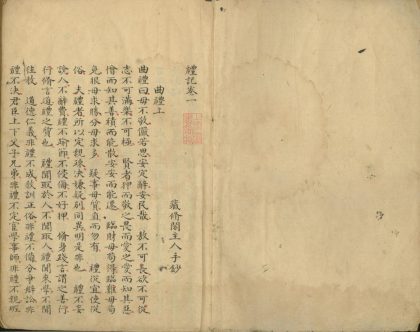 禮記卷一
曲禮上
藏脩閣主人手鈔
曲禮曰毋不敬儼若思安定辭安民哉 敖不可長欲不可從
志不可滿樂不可極 賢者狎而敬之畏而愛之愛而知其惡
憎而知其善積而能散安安而能遷 臨財毋苟得臨難毋苟
免狠毋求勝分毋求多 疑事毋質直而勿有 禮從宜使從
俗 夫禮者所以定親疏決嫌疑別同異明是非也 禮不妄
說人不辭費禮不踰節不侵侮不好狎 修身踐言謂之善行
行修言道禮之質也 禮聞取於人不聞取人禮聞來學不聞
往教 道德仁義非禮不成教訓正俗非禮不備分爭辨訟非
禮不決君臣上下父子兄弟非禮不定宦學事師非禮不親班